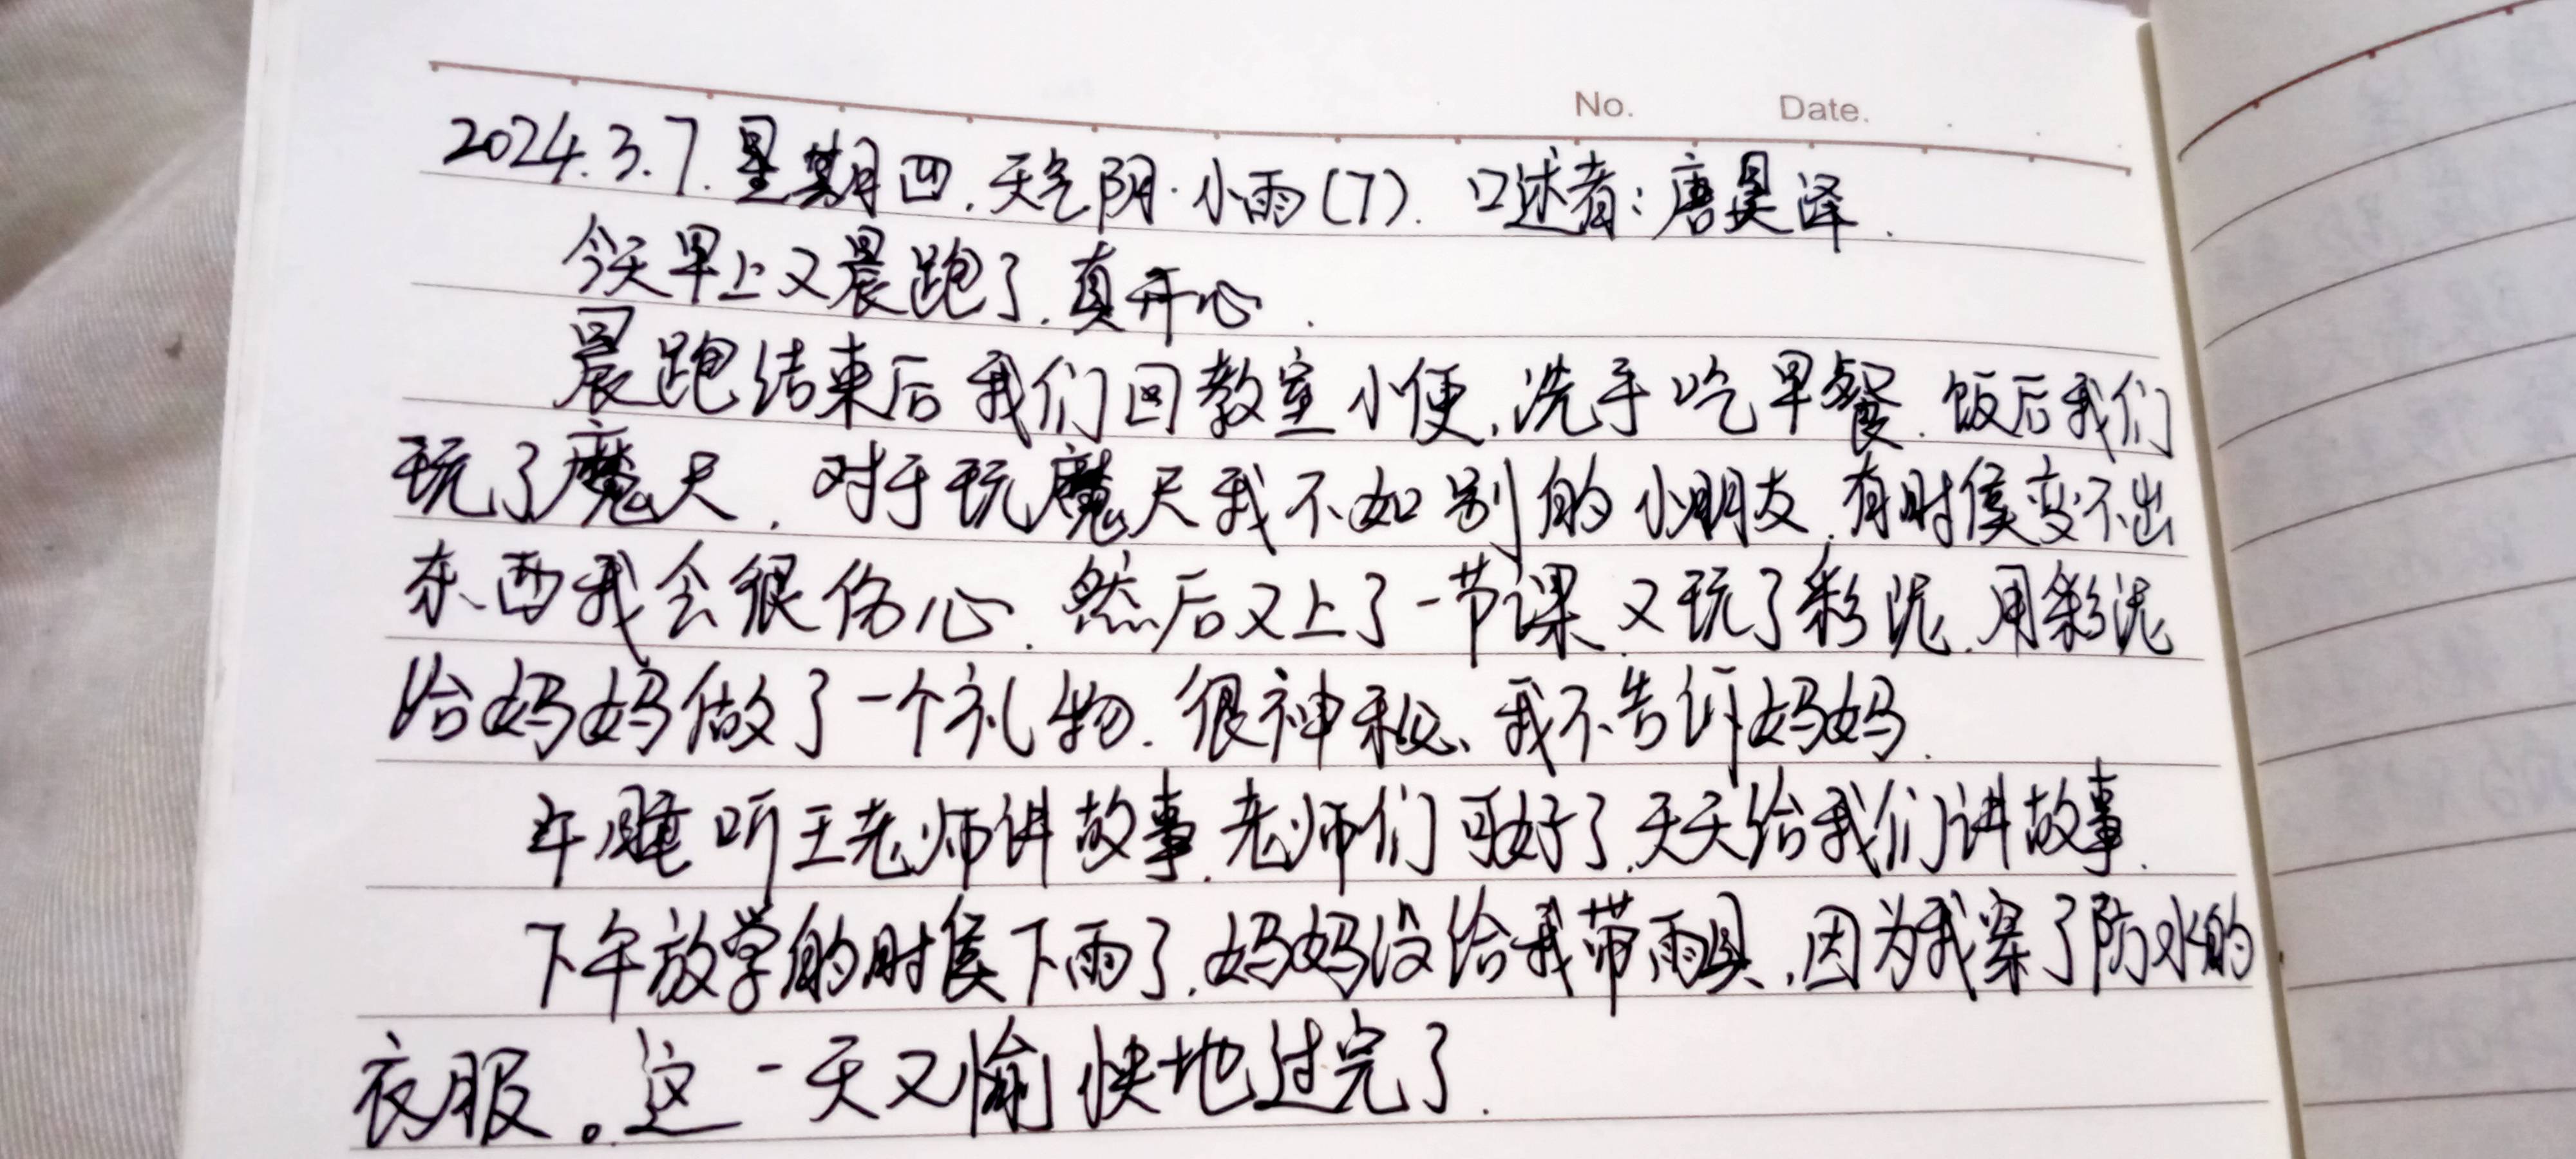 No. Date.
2024.3.7.星期四.天气阴.小雨(7). 口述者:唐昊泽.
今天早上又晨跑了.真开心.
晨跑结束后我们回教室小便,洗手吃早餐.饭后我们
玩了魔尺.对于玩魔尺我不如别的小朋友,有时侯变不出
东西我会很伤心.然后又上了一节课.又玩了彩泥.用彩泥
给妈妈做了一个礼物.很神秘、我不告诉妈妈.
午睡听王老师讲故事.老师们可好了.天天给我们讲故事.
下午放学的时侯下雨了.妈妈没给我带雨具,因为我穿了防水的
衣服。这一天又愉快地过完了.